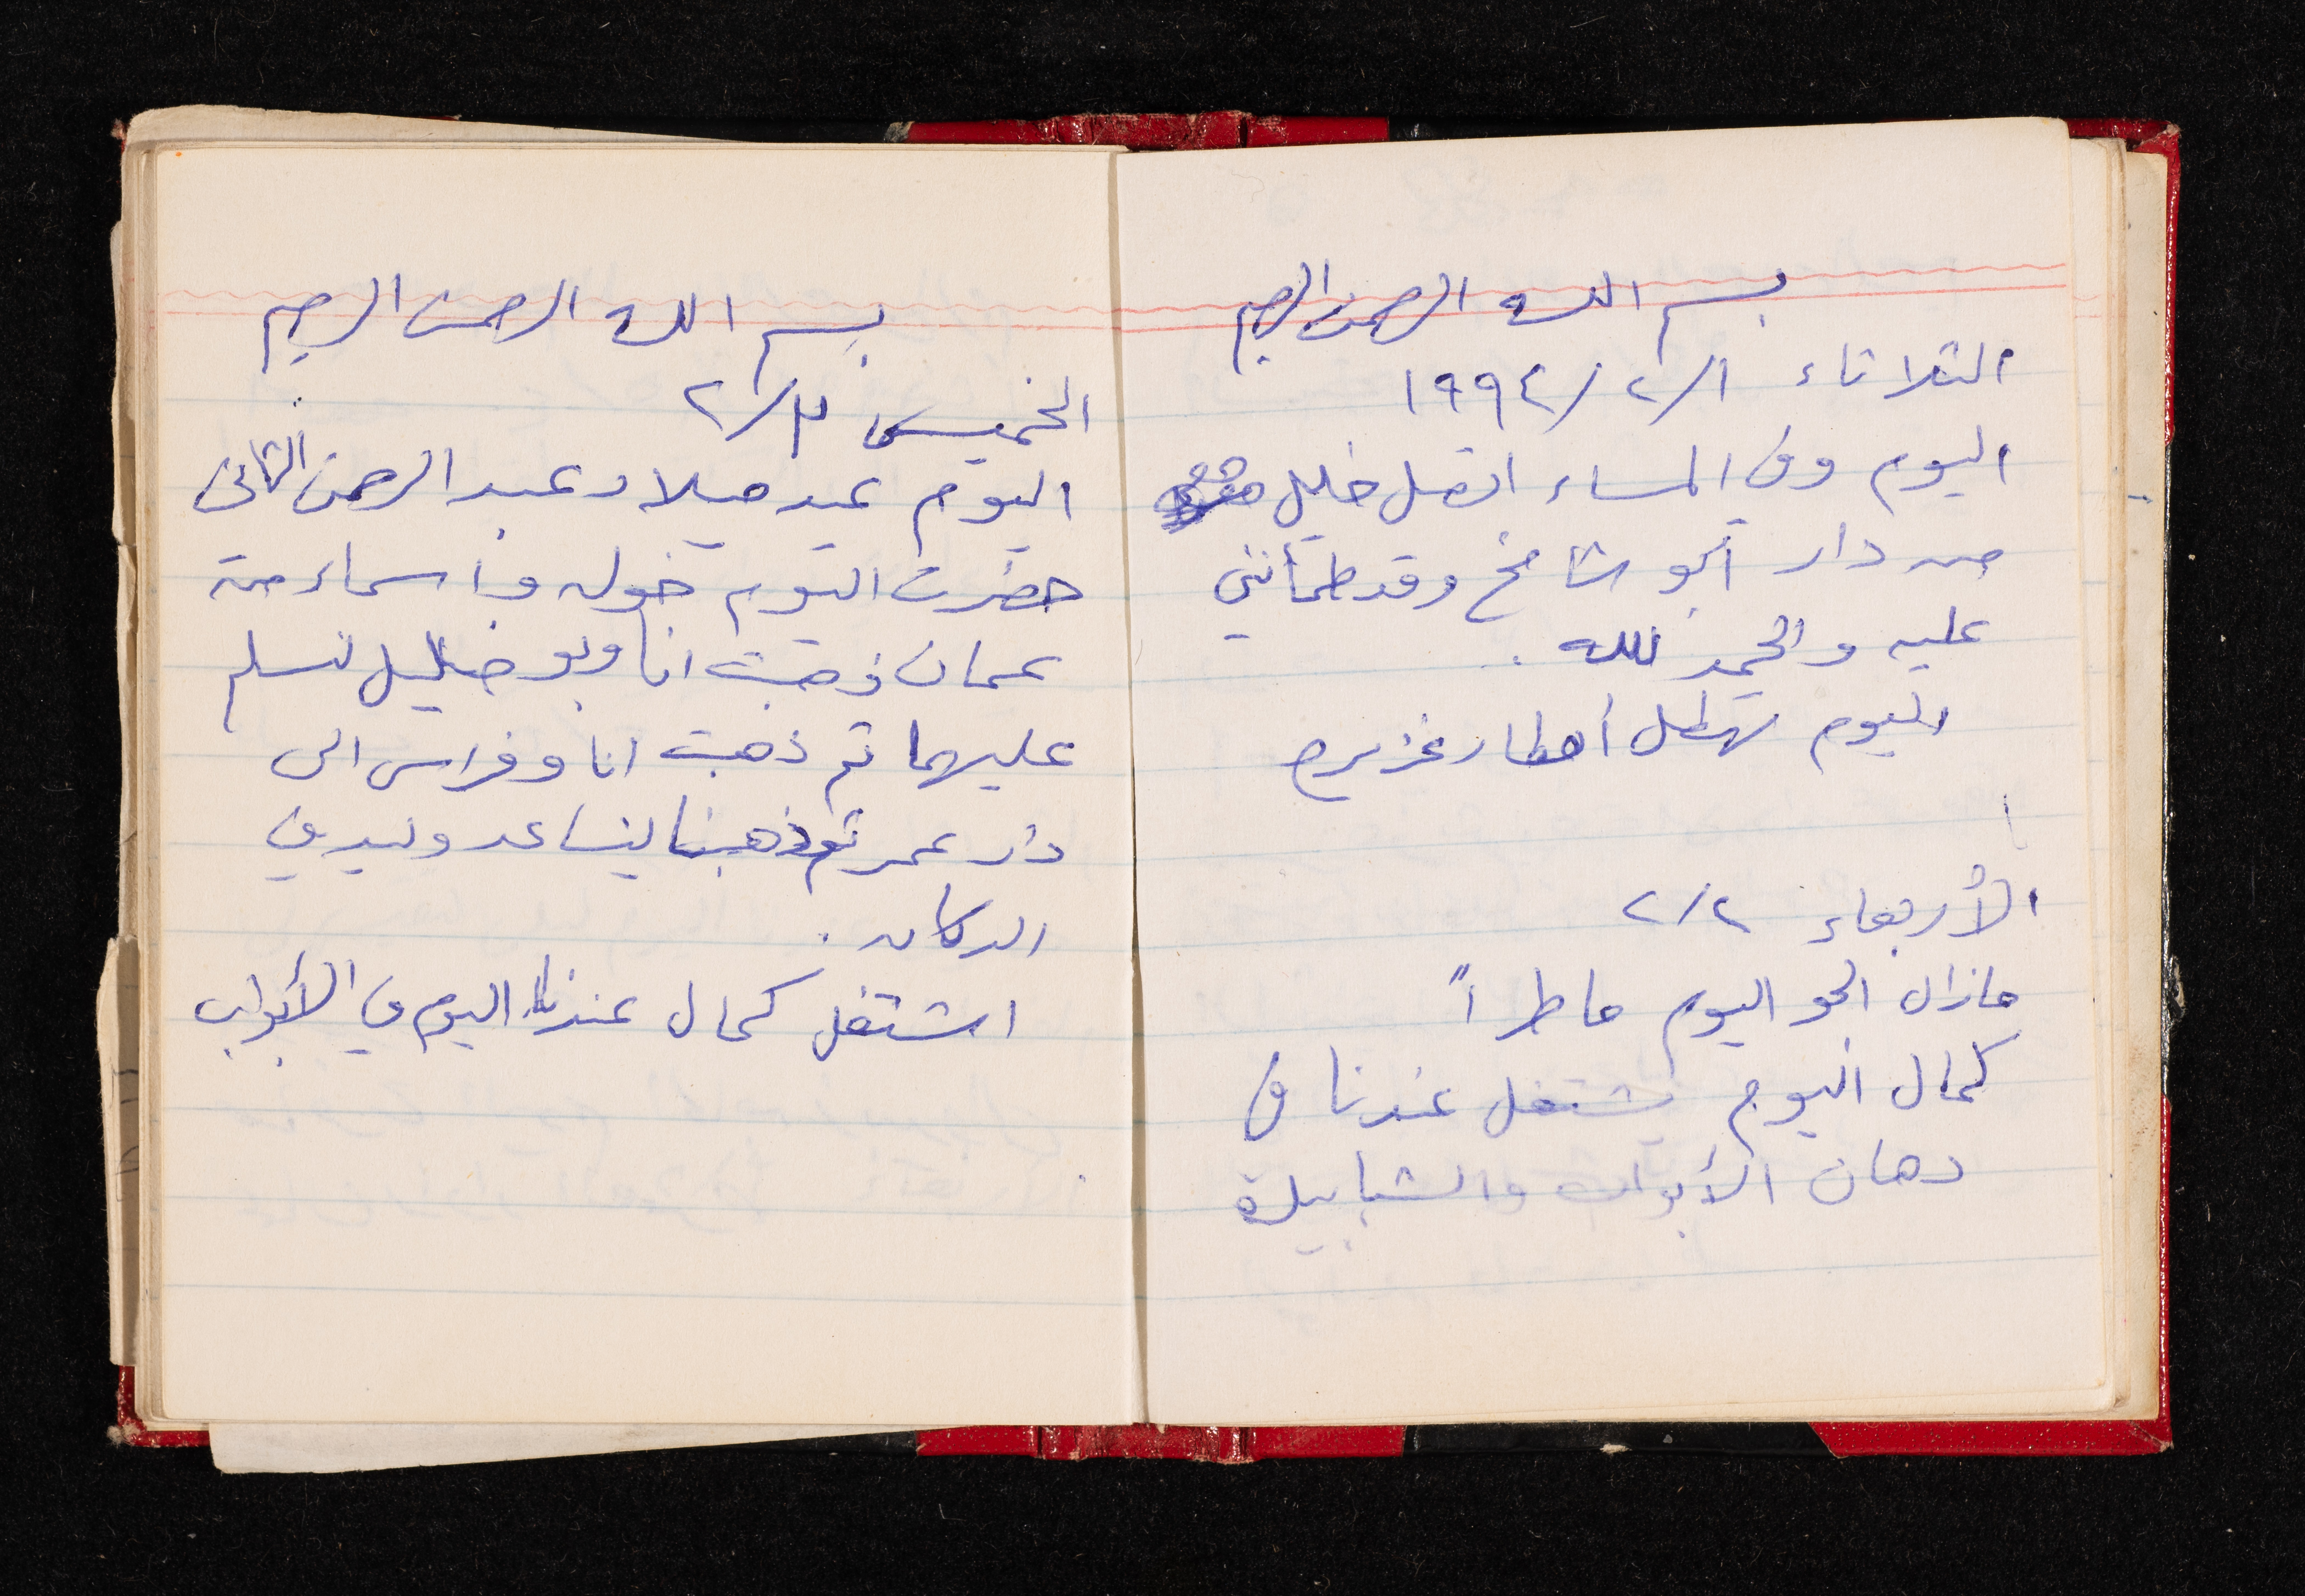 بسم الله الرحمن الرحيم
الثلاثاء ١/٢/١٩٩٤
اليوم وفي المساء اتصل خليل
من دار أبو شامخ وقد طمأنني
عليه والحمد لله.
اليوم تهطل أمطار غزيره
الأربعاء ٢/٢
مازال الجو اليوم ماطراً
كمال اليوم يشتغل عندنا في
دهان الأبواب والشبابيك
بسم الله الرحمن الرحيم
الخميس ٣/٢
اليوم عيد ميلاد عبد الرحمن الثاني
حضرت اليوم خوله وأسماء من
عمان ذهبت انا وبو خليل نسلم
عليهما ثم ذهبت انا وفراس الى
دار عمر ثم ذهبنا لنساعد وليد في
الدكان.
اشتغل كمال عندنا اليوم في الأبواب